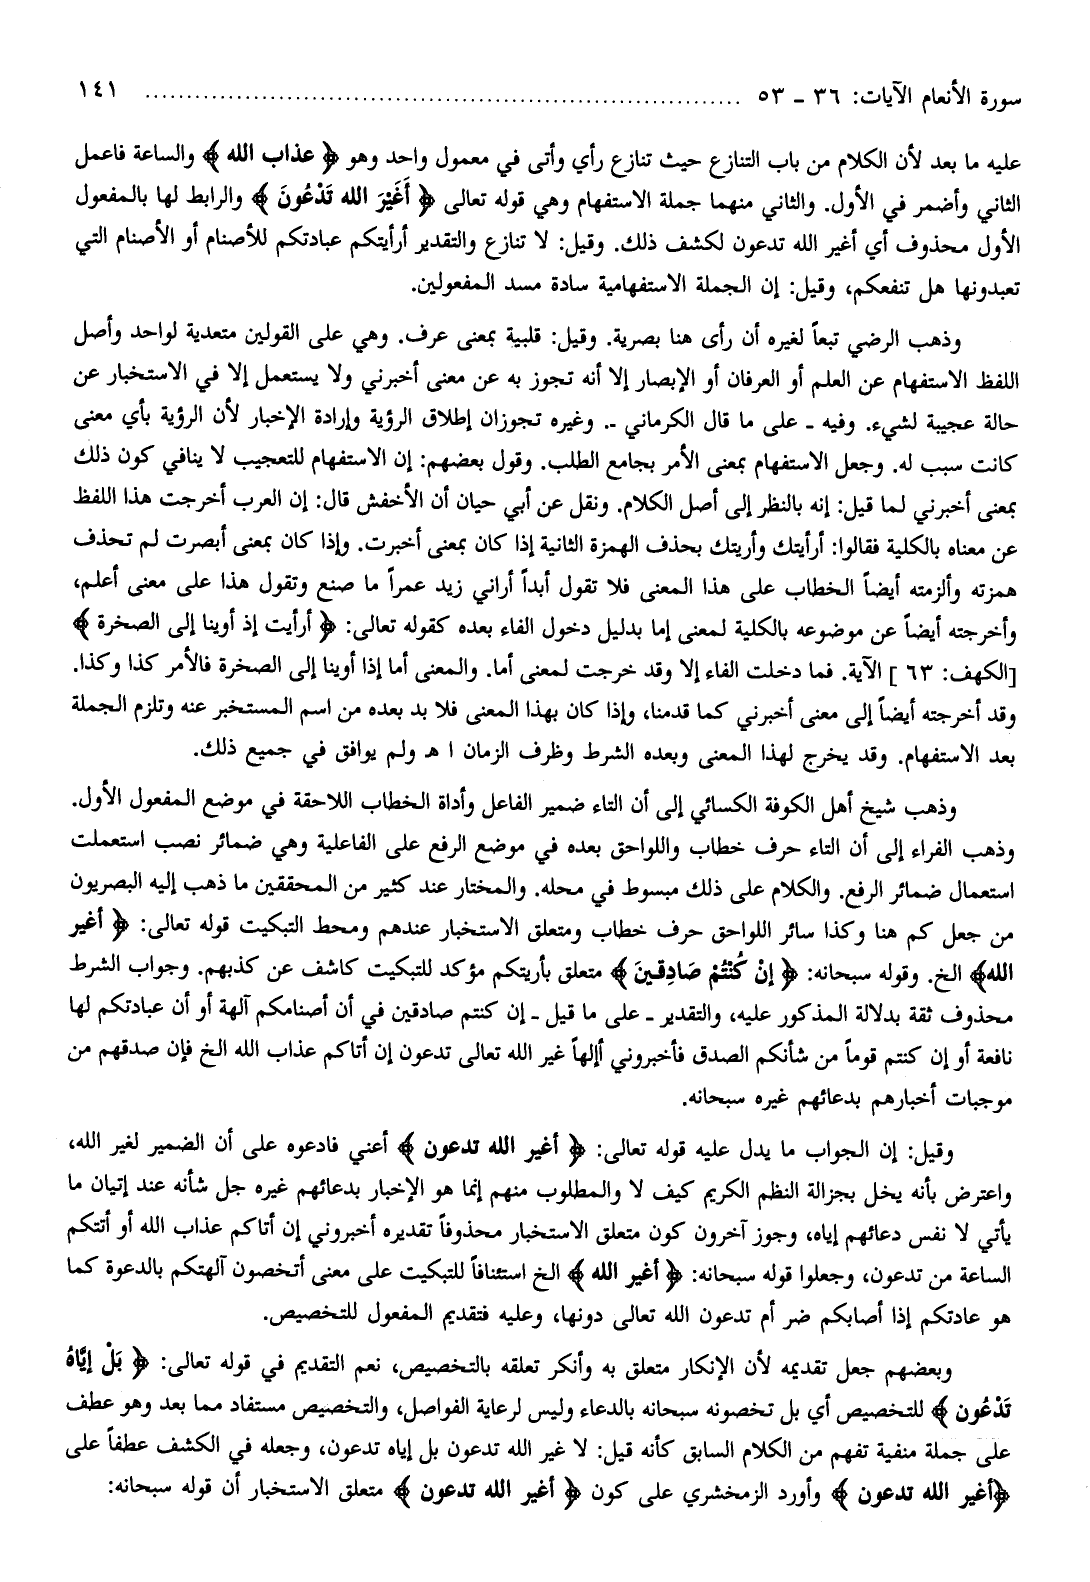 سورة الأنعام الآيات: ٣٦ ـ ٥٣ ........................................................................ ١٤١
عليه ما بعد لأن الكلام من باب التنازع حيث تنازع رأي وأتى في معمول واحد وهو ﴿ عذاب الله ﴾ والساعة فاعمل
الثاني وأضمر في الأول. والثاني منهما جملة الاستفهام وهي قوله تعالى ﴿ أَغَيْرَ الله تَدْعُونَ ﴾ والرابط لها بالمفعول
الأول محذوف أي أغير الله تدعون لكشف ذلك. وقيل: لا تنازع والتقدير أرأيتكم عبادتكم للأصنام أو الأصنام التي
تعبدونها هل تنفعكم، وقيل: إن الجملة الاستفهامية سادة مسد المفعولين.
وذهب الرضي تبعاً لغيره أن رأى هنا بصرية. وقيل: قلبية بمعنى عرف. وهي على القولين متعدية لواحد وأصل
اللفظ الاستفهام عن العلم أو العرفان أو الإبصار إلا أنه تجوز به عن معنى أخبرني ولا يستعمل إلا في الاستخبار عن
حالة عجيبة لشيء. وفيه ـ على ما قال الكرماني ـ. وغيره تجوزان إطلاق الرؤية وإرادة الإخبار لأن الرؤية بأي معنى
كانت سبب له. وجعل الاستفهام بمعنى الأمر بجامع الطلب. وقول بعضهم: إن الاستفهام للتعجيب لا ينافي كون ذلك
بمعنى أخبرني لما قيل: إنه بالنظر إلى أصل الكلام. ونقل عن أبي حيان أن الأخفش قال: إن العرب أخرجت هذا اللفظ
عن معناه بالكلية فقالوا: أرأيتك وأريتك بحذف الهمزة الثانية إذا كان بمعنى أخبرت. وإذا كان بمعنى أبصرت لم تحذف
همزته وألزمته أيضاً الخطاب على هذا المعنى فلا تقول أبداً أراني زيد عمراً ما صنع وتقول هذا على معنى أعلم،
وأخرجته أيضاً عن موضوعه بالكلية لمعنى إما بدليل دخول الفاء بعده كقوله تعالى: ﴿ أرأيت إذ أوينا إلى الصخرة ﴾
[الكهف: ٦٣ ] الآية. فما دخلت الفاء إلا وقد خرجت لمعنى أما. والمعنى أما إذا أوينا إلى الصخرة فالأمر كذا وكذا.
وقد أخرجته أيضاً إلى معنى أخبرني كما قدمنا، وإذا كان بهذا المعنى فلا بد بعده من اسم المستخبر عنه وتلزم الجملة
بعد الاستفهام. وقد يخرج لهذا المعنى وبعده الشرط وظرف الزمان ا هـ ولم يوافق في جميع ذلك.
وذهب شيخ أهل الكوفة الكسائي إلى أن التاء ضمير الفاعل وأداة الخطاب اللاحقة في موضع المفعول الأول.
وذهب الفراء إلى أن التاء حرف خطاب واللواحق بعده في موضع الرفع على الفاعلية وهي ضمائر نصب استعملت
استعمال ضمائر الرفع. والكلام على ذلك مبسوط في محله. والمختار عند كثير من المحققين ما ذهب إليه البصريون
من جعل كم هنا وكذا سائر اللواحق حرف خطاب ومتعلق الاستخبار عندهم ومحط التبكيت قوله تعالى: ﴿ أغير
الله﴾ الخ. وقوله سبحانه: ﴿ إنْ كُنْتُمْ صَادِقينَ ﴾ متعلق بأريتكم مؤكد للتبكيت كاشف عن كذبهم. وجواب الشرط
محذوف ثقة بدلالة المذكور عليه، والتقدير ـ على ما قيل ـ إن كنتم صادقين في أن أصنامكم آلهة أو أن عبادتكم لها
نافعة أو إن كنتم قوماً من شأنكم الصدق فأخبروني أإلهاً غير الله تعالى تدعون إن أتاكم عذاب الله الخ فإن صدقهم من
موجبات أخبارهم بدعائهم غيره سبحانه.
وقيل: إن الجواب ما يدل عليه قوله تعالى: ﴿ أغير الله تدعون ﴾ أعني فادعوه على أن الضمير لغير الله،
واعترض بأنه يخل بجزالة النظم الكريم كيف لا والمطلوب منهم إنما هو الإخبار بدعائهم غيره جل شأنه عند إتيان ما
يأتي لا نفس دعائهم إياه، وجوز آخرون كون متعلق الاستخبار محذوفاً تقديره أخبروني إن أتاكم عذاب الله أو أتتكم
الساعة من تدعون، وجعلوا قوله سبحانه: ﴿ أغير الله ﴾ الخ استئنافاً للتبكيت على معنى أتخصون آلهتكم بالدعوة كما
هو عادتكم إذا أصابكم ضر أم تدعون الله تعالى دونها، وعليه فتقديم المفعول للتخصيص.
وبعضهم جعل تقديمه لأن الإنكار متعلق به وأنكر تعلقه بالتخصيص، نعم التقديم في قوله تعالى: ﴿ بَلْ إيَّاهُ
تَدْعُون ﴾ للتخصيص أي بل تخصونه سبحانه بالدعاء وليس لرعاية الفواصل، والتخصيص مستفاد مما بعد وهو عطف
على جملة منفية تفهم من الكلام السابق كأنه قيل: لا غير الله تدعون بل إياه تدعون، وجعله في الكشف عطفاً على
﴿أغير الله تدعون ﴾ وأورد الزمخشري على كون ﴿ أغير الله تدعون ﴾ متعلق الاستخبار أن قوله سبحانه: